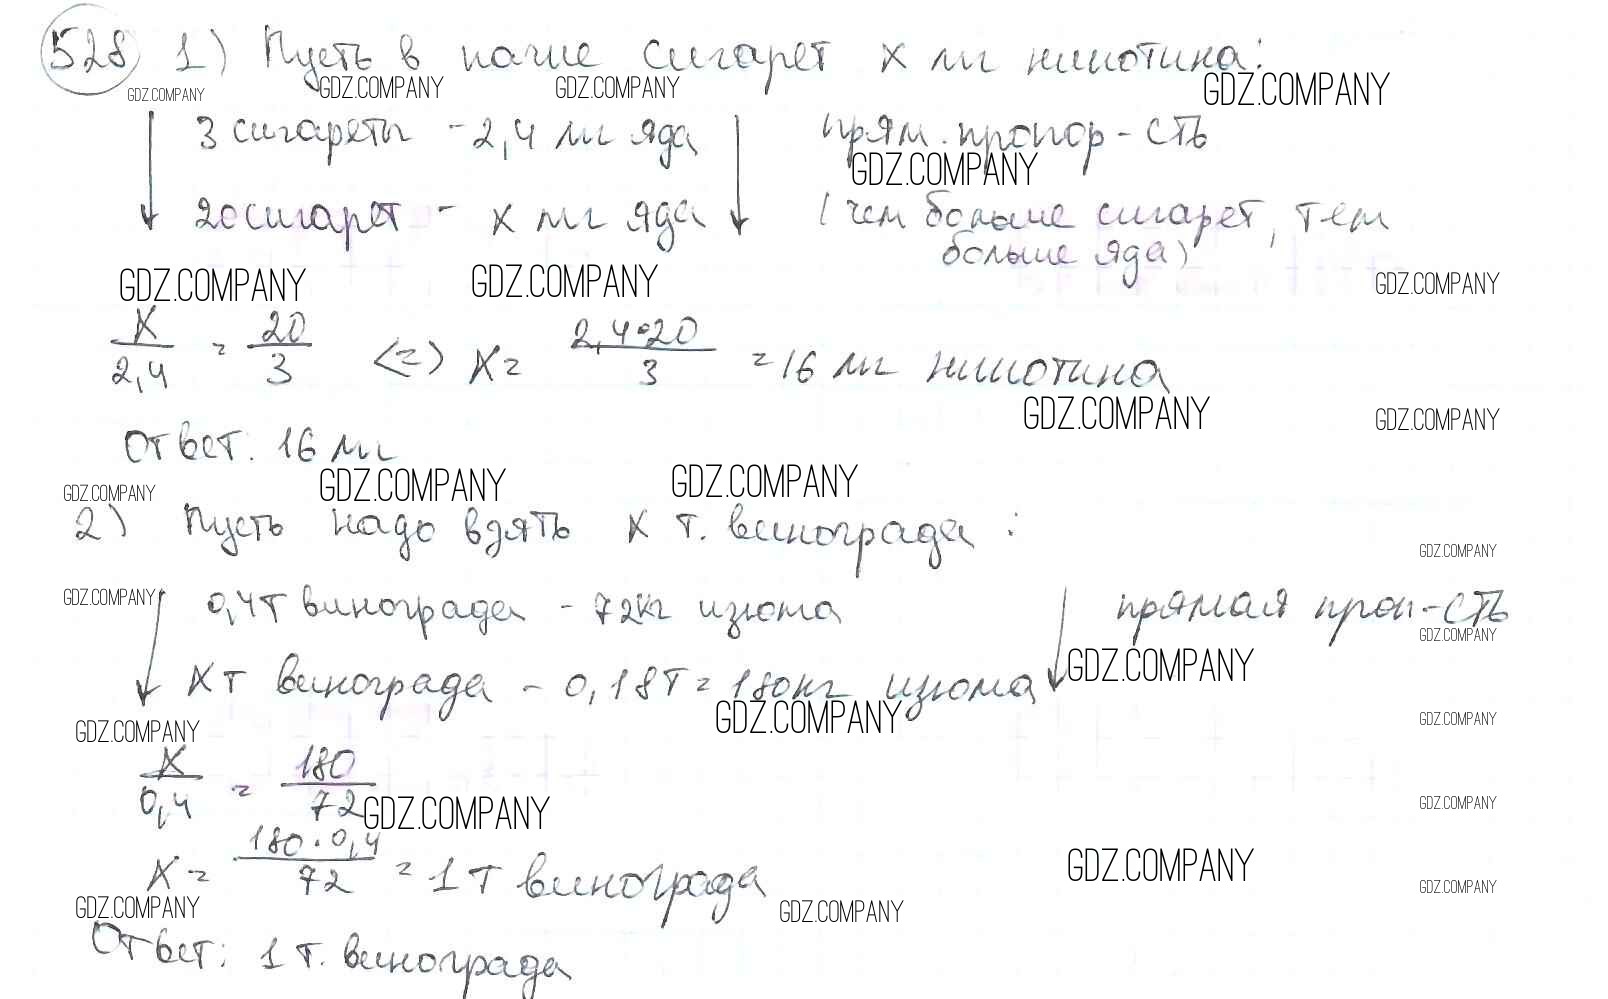 528 1) Пусть в пачке сигарет x мг никотина:
GDZ.COMPANY GDZ.COMPANY GDZ.COMPANY GDZ.COMPANY
3 сигареты - 2,4 мг яда прям. пропор-сть
GDZ.COMPANY
20 сигарет - x мг яда (чем больше сигарет, тем
больше яда)
GDZ.COMPANY GDZ.COMPANY GDZ.COMPANY
x/2,4 = 20/3 <=> x = 2,4•20/3 = 16 мг никотина
GDZ.COMPANY GDZ.COMPANY
Ответ: 16 мг
GDZ.COMPANY GDZ.COMPANY GDZ.COMPANY
2) Пусть надо взять x т. винограда:
GDZ.COMPANY
GDZ.COMPANY 0,4т винограда - 72кг изюма прямая проп-сть
GDZ.COMPANY
GDZ.COMPANY
x т винограда - 0,18т = 180кг изюма
GDZ.COMPANY GDZ.COMPANY GDZ.COMPANY
x/0,4 = 180/72
GDZ.COMPANY GDZ.COMPANY
x = 180·0,4/72 = 1 т винограда
GDZ.COMPANY GDZ.COMPANY
GDZ.COMPANY GDZ.COMPANY
Ответ: 1 т. винограда